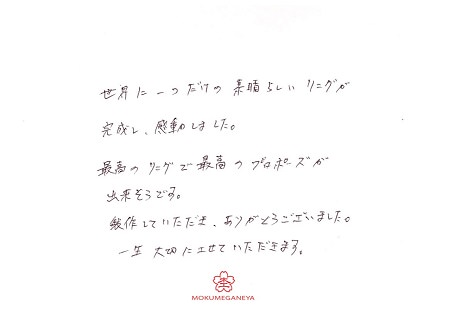 世界に一つだけの素晴らしいリングが
完成し、感動しました。
最高のリングで最高のプロポーズが
出来そうです。
製作していただき、ありがとうございました。
一生大切にさせていただきます。
MOKUMEGANEYA